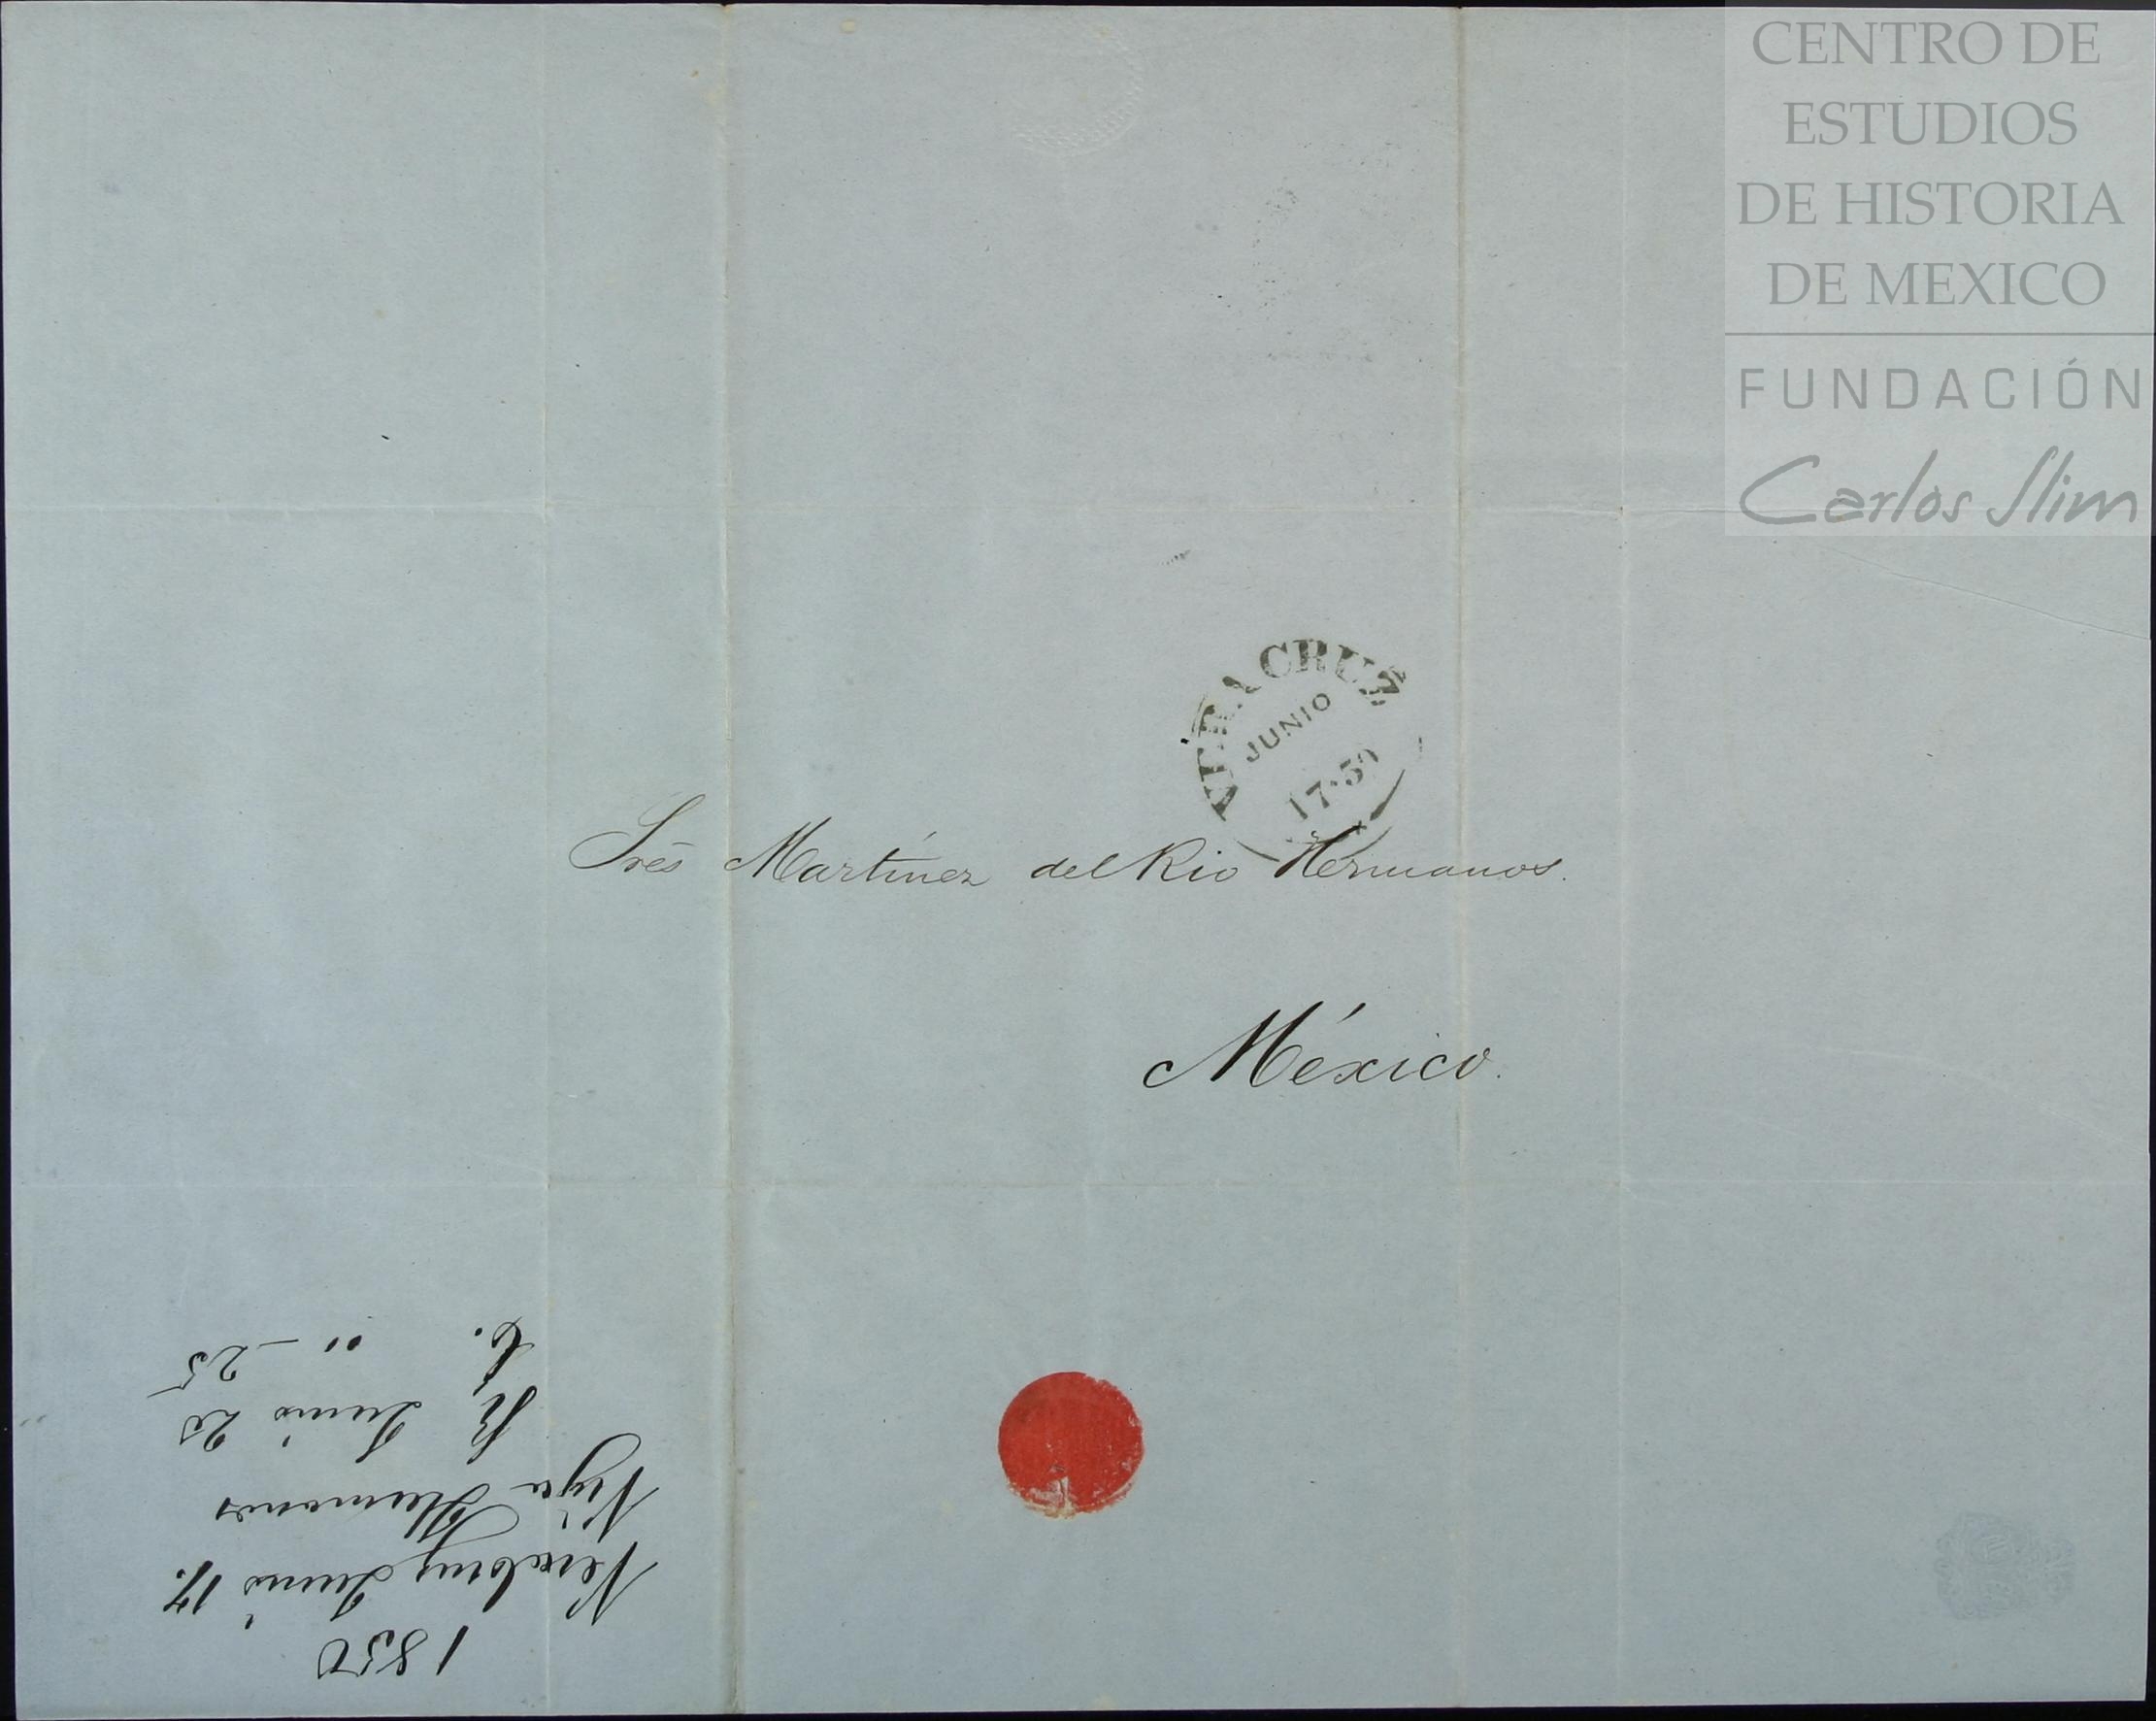 CENTRO DE
ESTUDIOS
DE HISTORIA
DE MEXICO
FUNDACIÓN
Carlos Slim
VERA CRUZ
JUNIO
17·50
Sres Martínez del Rio Hermanos.
México.
1850
Veracruz Junio 17.
Viya Hermanos
R Junio 20
C. " - 25